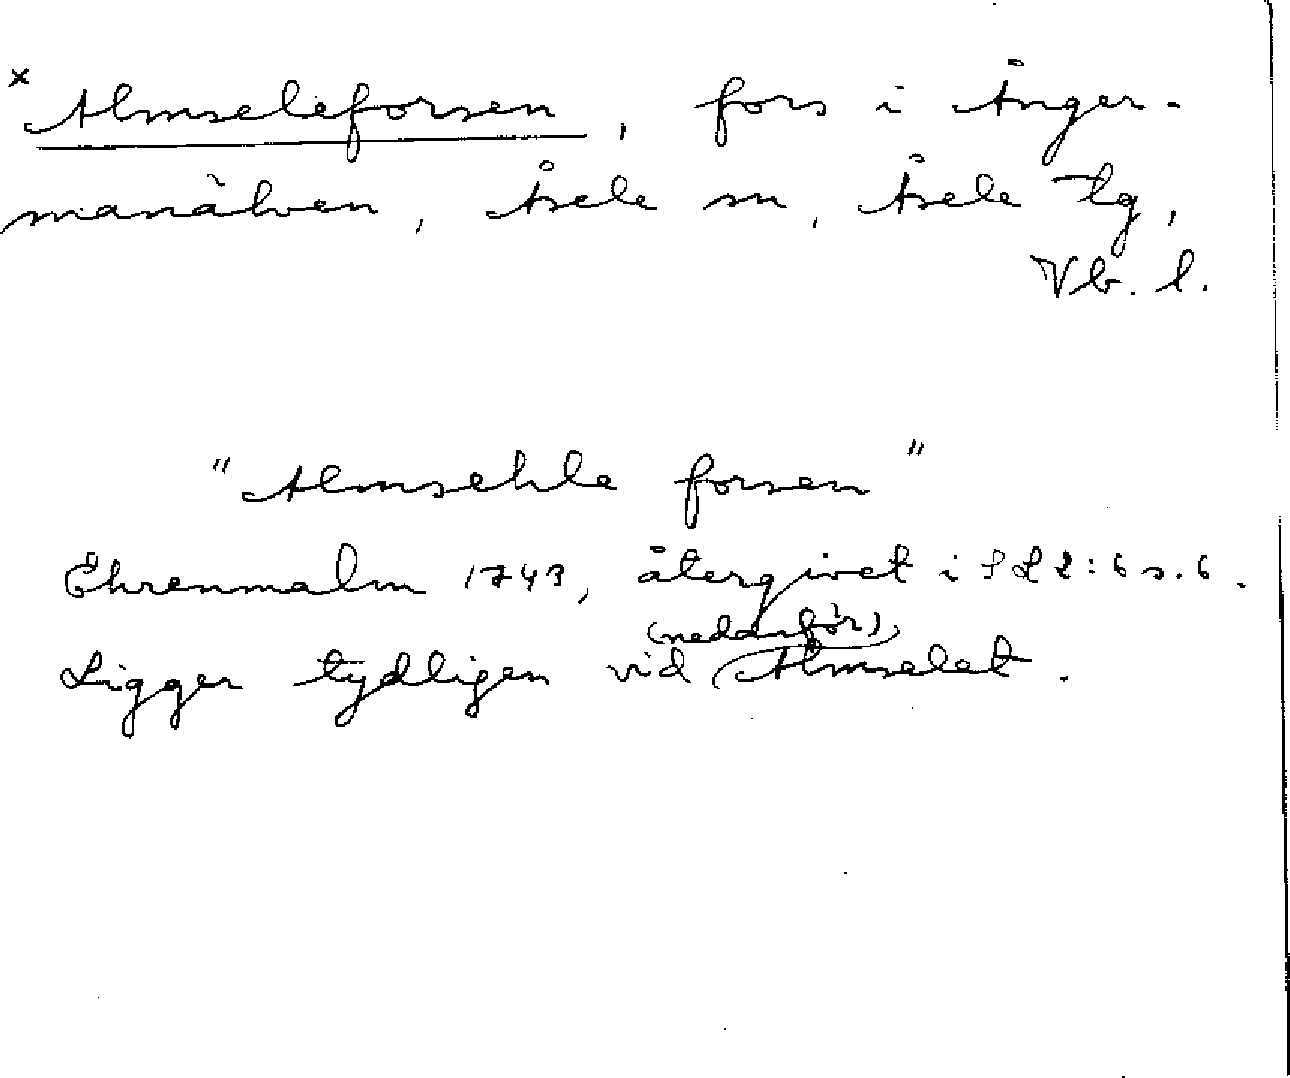 × Almseleforsen, fors i Ånger-
manälven, Åsele sn, Åsele tg,
Vb. l.
"Almsehle forsen"
Ehrenmalm 1743, återgivet i SL 2:6 s. 6.
(nedanför)
Ligger tydligen vid Almselet.